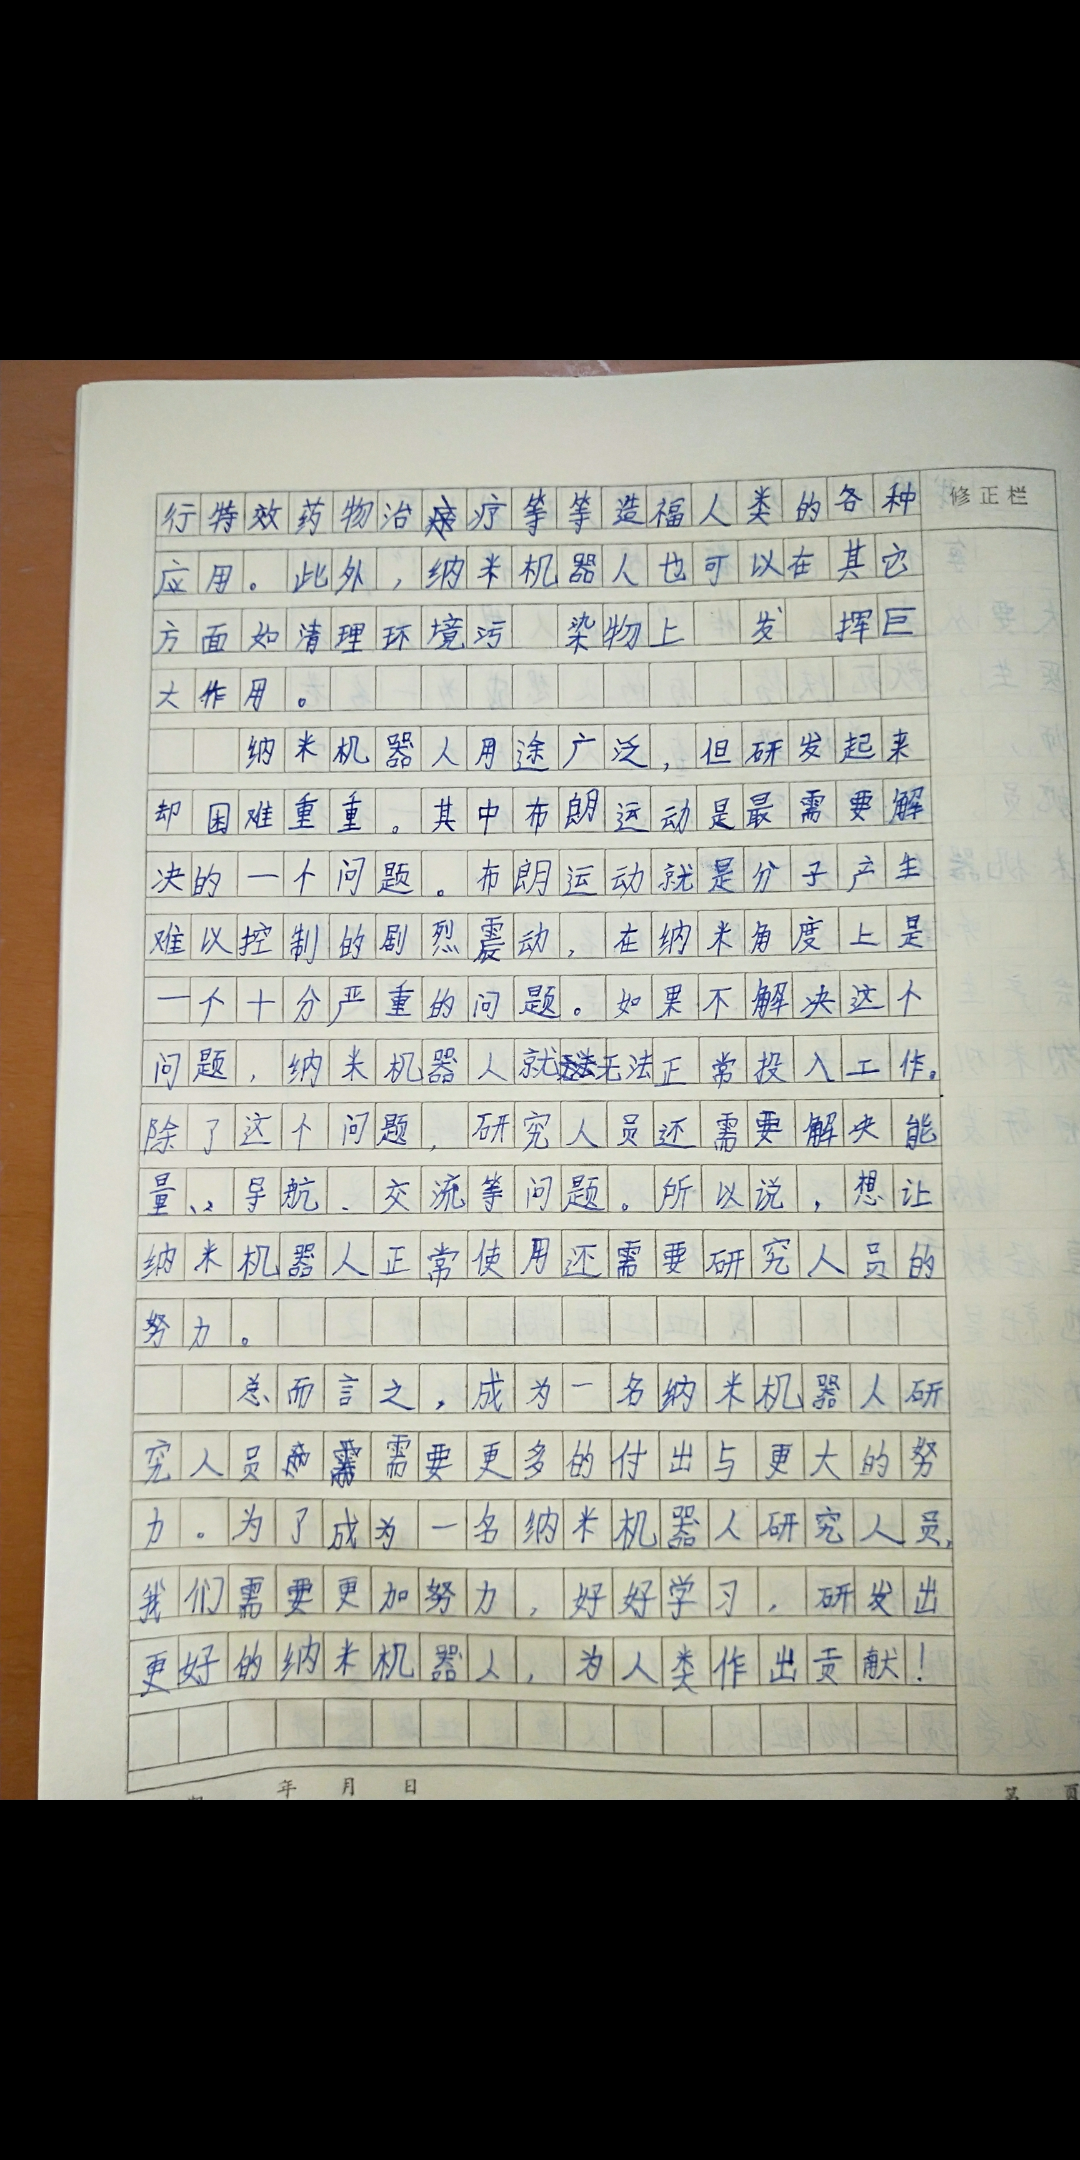 修正栏
行特效药物治疗等等造福人类的各种
应用。此外，纳米机器人也可以在其它
方面如清理环境污 染物上 发 挥巨
大作用。
纳米机器人用途广泛，但研发起来
却困难重重。其中布朗运动是最需要解
决的一个问题。布朗运动就是分子产生
难以控制的剧烈震动，在纳米角度上是
一个十分严重的问题。如果不解决这个
问题，纳米机器人就无法正常投入工作。
除了这个问题，研究人员还需要解决能
量、导航、交流等问题。所以说，想让
纳米机器人正常使用还需要研究人员的
努力。
总而言之，成为一名纳米机器人研
究人员需要更多的付出与更大的努
力。为了成为一名纳米机器人研究人员，
我们需要更加努力，好好学习，研发出
更好的纳米机器人，为人类作出贡献！
年 月 日
第 页